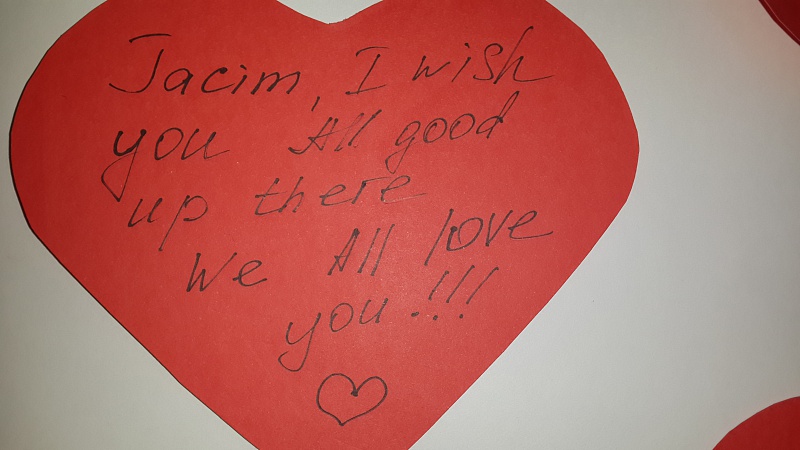 Jacim, I wish
you All good
up there
We All love
you!!!